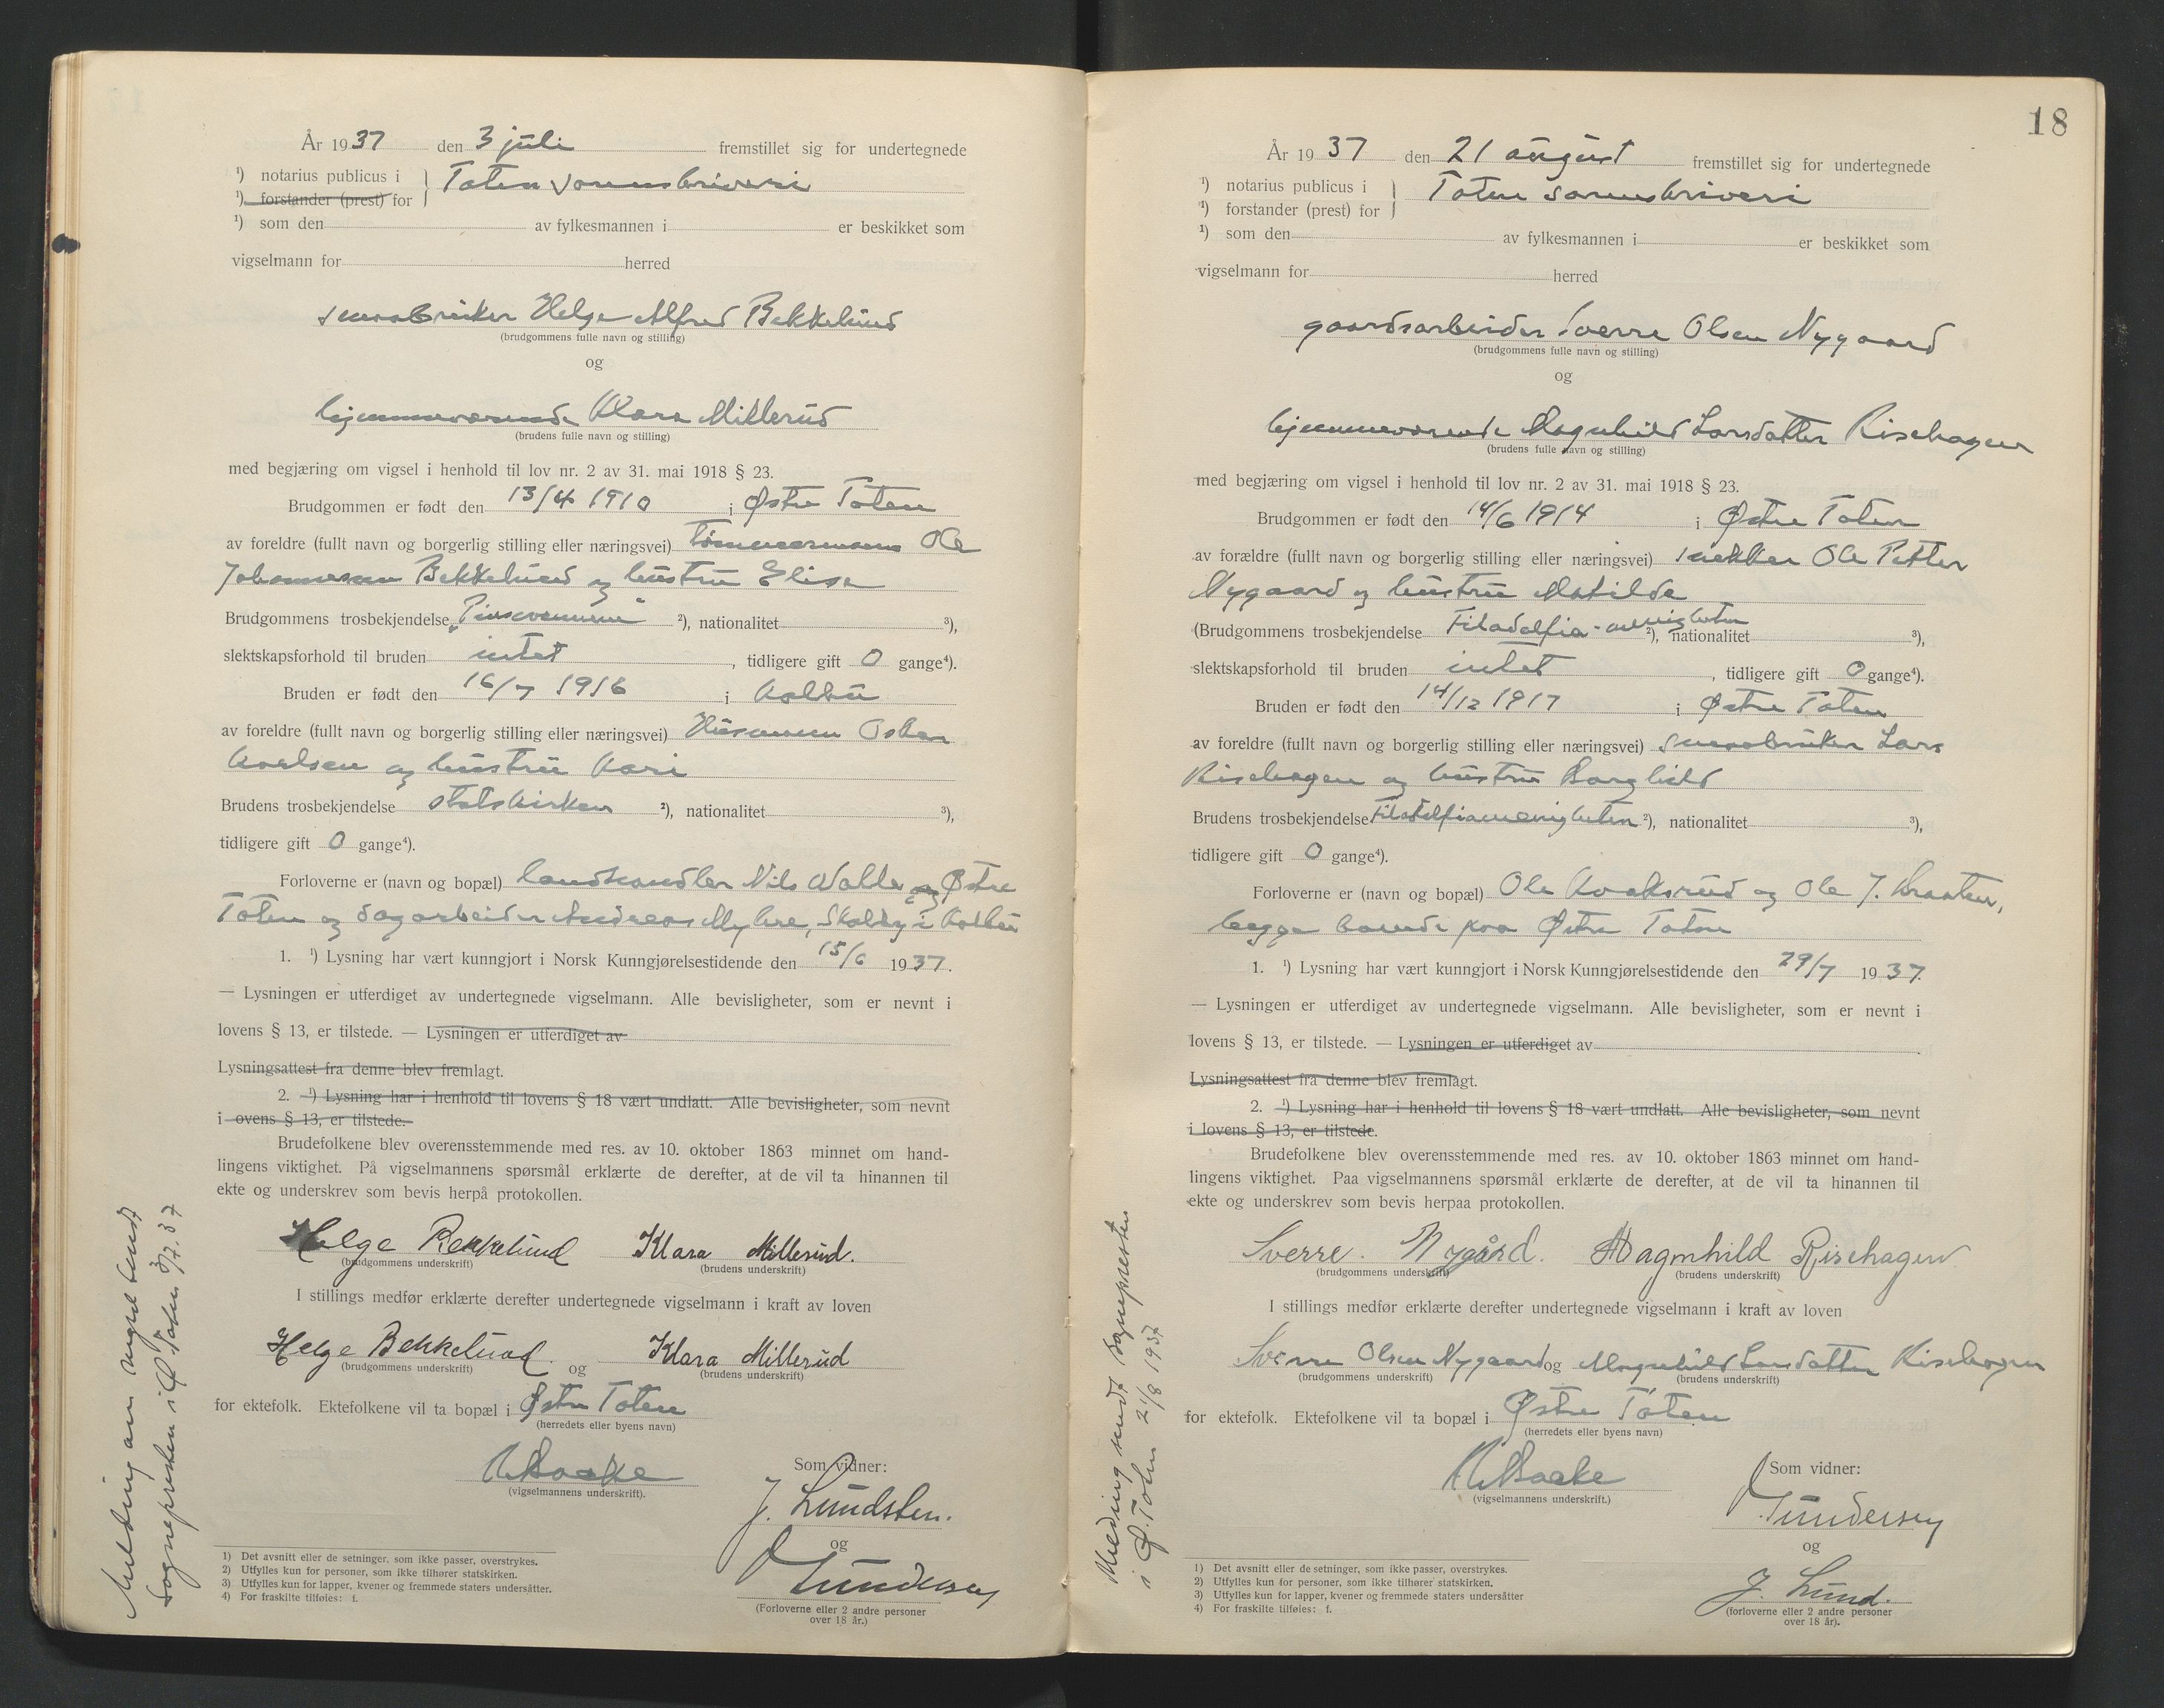 År 1937 den 3 juli fremstillet sig for undertegnede
¹) notarius publicus i } Toten sorenskriveri
¹) forstander (prest) for
¹) som den av fylkesmannen i er beskikket som
vigselmann for herred
smaabruker Helge Alfred Bekkelund
(brudgommens fulle navn og stilling)
og
hjemmeværende Klara Millerud
(brudens fulle navn og stilling)
med begjæring om vigsel i henhold til lov nr. 2 av 31. mai 1918 § 23.
Brudgommen er født den 13/4 1910 i Østre Toten
av foreldre (fullt navn og borgerlig stilling eller næringsvei) tømmermann Ole
Johannesen Bekkelund og hustru Elise
Brudgommens trosbekjendelse „Pinsevennene" ²), nationalitet ³),
slektskapsforhold til bruden intet , tidligere gift 0 gange⁴).
Bruden er født den 16/7 1916 i Kolbu
av foreldre (fullt navn og borgerlig stilling eller næringsvei) Husmann Oskar
Karlsen og hustru Kari
Brudens trosbekjendelse statskirken ²), nationalitet ³),
tidligere gift 0 gange⁴).
Forloverne er (navn og bopæl) landhandler Nils og Østre
Toten og dagarbeider Andreas Myhre, i Kolbu
1. ¹) Lysning har vært kunngjort i Norsk Kunngjørelsestidende den 15/6 1937.
— Lysningen er utferdiget av undertegnede vigselmann. Alle bevisligheter, som er nevnt i
lovens § 13, er tilstede. — Lysningen er utferdiget av
Lysningsattest fra denne blev fremlagt.
2. ¹) Lysning har i henhold til lovens § 18 vært undlatt. Alle bevisligheter, som nevnt
i ovens § 13, er tilstede.
Brudefolkene blev overensstemmende med res. av 10. oktober 1863 minnet om hand-
lingens viktighet. På vigselmannens spørsmål erklærte de derefter, at de vil ta hinannen til
ekte og underskrev som bevis herpå protokollen.
Helge Bekkelund Klara Millerud.
(brudgommens underskrift) (brudens underskrift)
I stillings medfør erklærte derefter undertegnede vigselmann i kraft av loven
Helge Bekkelund og Klara Millerud
(brudgommens underskrift) (brudens underskrift)
for ektefolk. Ektefolkene vil ta bopæl i Østre Toten
(herredets eller byens navn)
(vigselmannens underskrift).
Som vidner:
J. Lundsten.
og
Gundersen
(Forloverne eller 2 andre personer
over 18 år.)
1) Det avsnitt eller de setninger, som ikke passer, overstrykes.
2) Utfylles kun for personer, som ikke tilhører statskirken.
3) Utfylles kun for lapper, kvener og fremmede staters undersåtter.
4) For fraskilte tilføies: f.
Melding om vigsel sendt
sognepresten i Ø. Toten 3/7.37
18
År 1937 den 21 august fremstillet sig for undertegnede
¹) notarius publicus i } Toten sorenskriveri
¹) forstander (prest) for
¹) som den av fylkesmannen i er beskikket som
vigselmann for herred
gaardsarbeider Sverre Olsen Nygaard
(brudgommens fulle navn og stilling)
og
hjemmeværende Magnhild Larsdatter Risehagen
(brudens fulle navn og stilling)
med begjæring om vigsel i henhold til lov nr. 2 av 31. mai 1918 § 23.
Brudgommen er født den 14/6 1914 i Østre Toten
av forældre (fullt navn og borgerlig stilling eller næringsvei) snekker Ole Petter
Nygaard og hustru Matilde
(Brudgommens trosbekjendelse Filadelfia-menigheten ²), nationalitet ³),
slektskapsforhold til bruden intet , tidligere gift 0 gange⁴).
Bruden er født den 14/12 1917 i Østre Toten
av foreldre (fullt navn og borgerlig stilling eller næringsvei) smaabruker Lars
Risehagen og hustru Borghild
Brudens trosbekjendelse Filadelfiamenigheten ²), nationalitet ³),
tidligere gift 0 gange⁴).
Forloverne er (navn og bopæl) Ole og Ole J. Braaten,
begge boende paa Østre Toten
1. ¹) Lysning har vært kunngjort i Norsk Kunngjørelsestidende den 29/7 1937.
— Lysningen er utferdiget av undertegnede vigselmann. Alle bevisligheter, som er nevnt i
lovens § 13, er tilstede. — Lysningen er utferdiget av
Lysningsattest fra denne blev fremlagt.
2. ¹) Lysning har i henhold til lovens § 18 vært undlatt. Alle bevisligheter, som nevnt
i lovens § 13, er tilstede.
Brudefolkene blev overensstemmende med res. av 10. oktober 1863 minnet om hand-
lingens viktighet. Paa vigselmannens spørsmål erklærte de derefter, at de vil ta hinannen til
ekte og underskrev som bevis herpaa protokollen.
Sverre. Nygård. Magnhild Risehagen
(brudgommens underskrift) (brudens underskrift)
I stillings medfør erklærte derefter undertegnede vigselmann i kraft av loven
Sverre Olsen Nygaard og Magnhild Larsdatter Risehagen
(brudgommens underskrift) (brudens underskrift)
for ektefolk. Ektefolkene vil ta bopæl i Østre Toten
(herredets eller byens navn)
(vigselmannens underskrift.)
Som vidner:
Gundersen
og
J. Lund.
(forloverne eller 2 andre personer
over 18 år).
1) Det avsnitt eller de setninger, som ikke passer, overstrykes.
2) Utfylles kun for personer, som ikke tilhører statskirken.
3) Utfylles kun for lapper, kvener og fremmede staters undersåtter
4) For fraskilte tilføies: f.
Melding sendt sognepresten
i Ø. Toten 21/8 1937